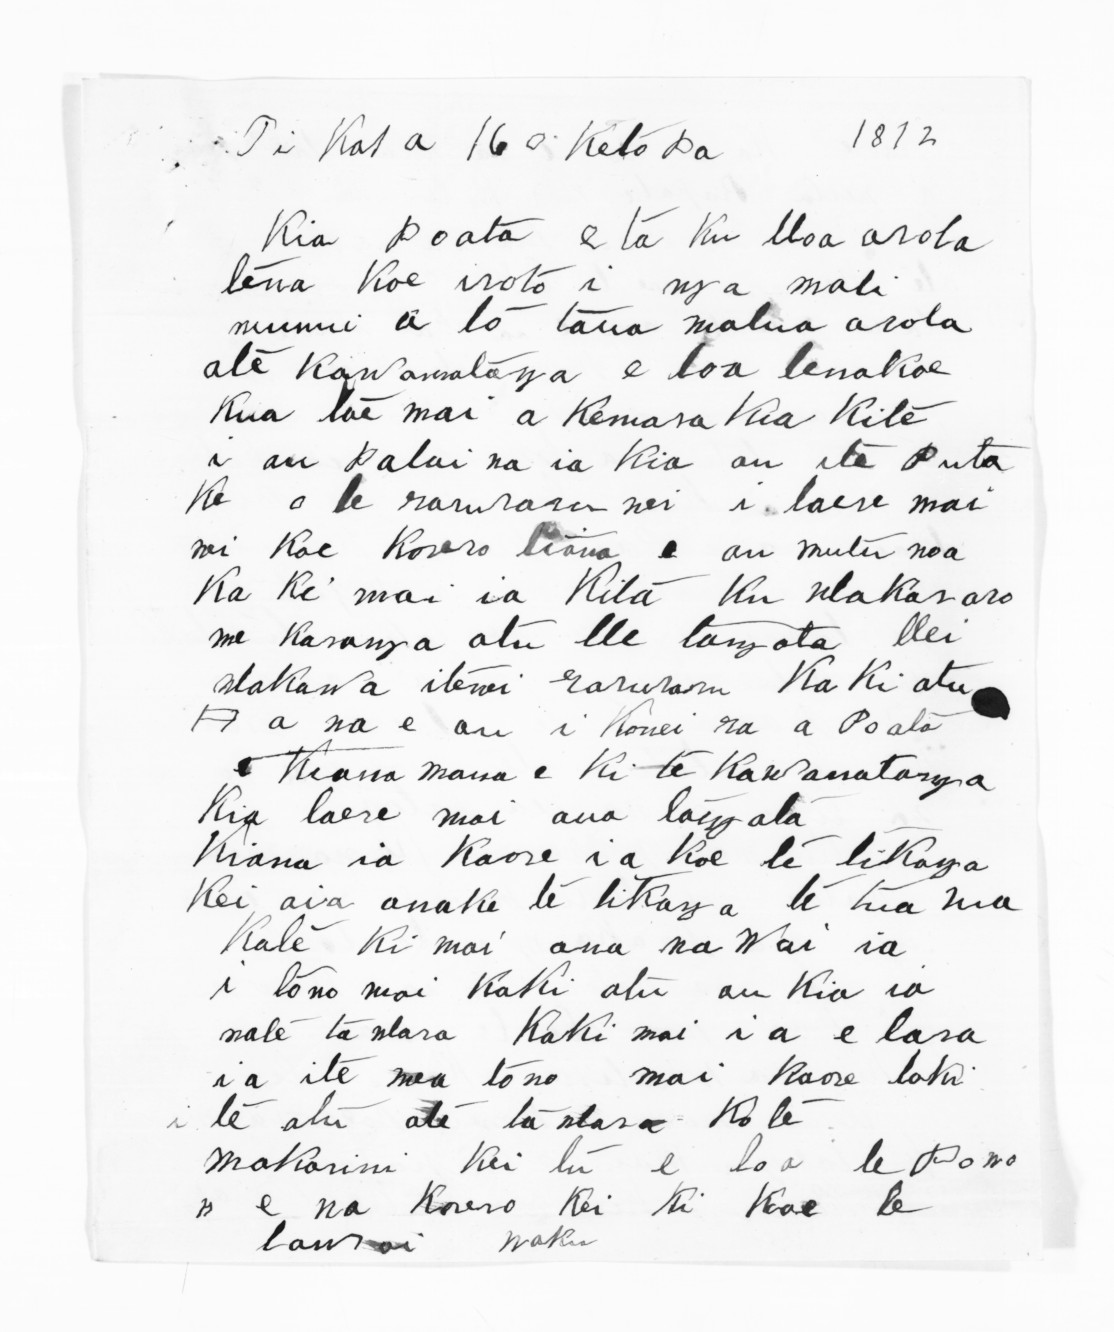 Ti Kata 16 o Ketopa 1872
Kia Poata e ta Ku Hoa aroha
tena Koe iroto i nga mate
nunui a to taua matua aroha
ate Kawanatanga e hoa tenakoe
Kua tae mai a Kemara Kia Kite
i au Patai na ia Kia au ite Puta
Ke o te raruraru nei i haere mai
nei Koe Korero tiana e au mutu noa
Ka Ki mai ia Kita Ku Whakaaro
me Karanga atu He tangata Hei
whakawa itenei raruraru Ka Ki atu
a na e au i Konei ra a Poata
e Kiana mana e Ki te Kawanatanga
Kia haere mai ana tangata
Kiana ia Kaore ia Koe te tikanga
Kei aia anake te tikanga te tua rua
Kate Ki mai ana na Wai ia
i tono mai Kaki atu au Kia ia
nate ta whara Kaki mai ia e hara
ia ite mea tono mai Kaore toki
i te atu ate ta whara Ko te
Makarini Kei tu e hoa te Pono
n e na Korero Kei Ki Koe te
tawhai naku